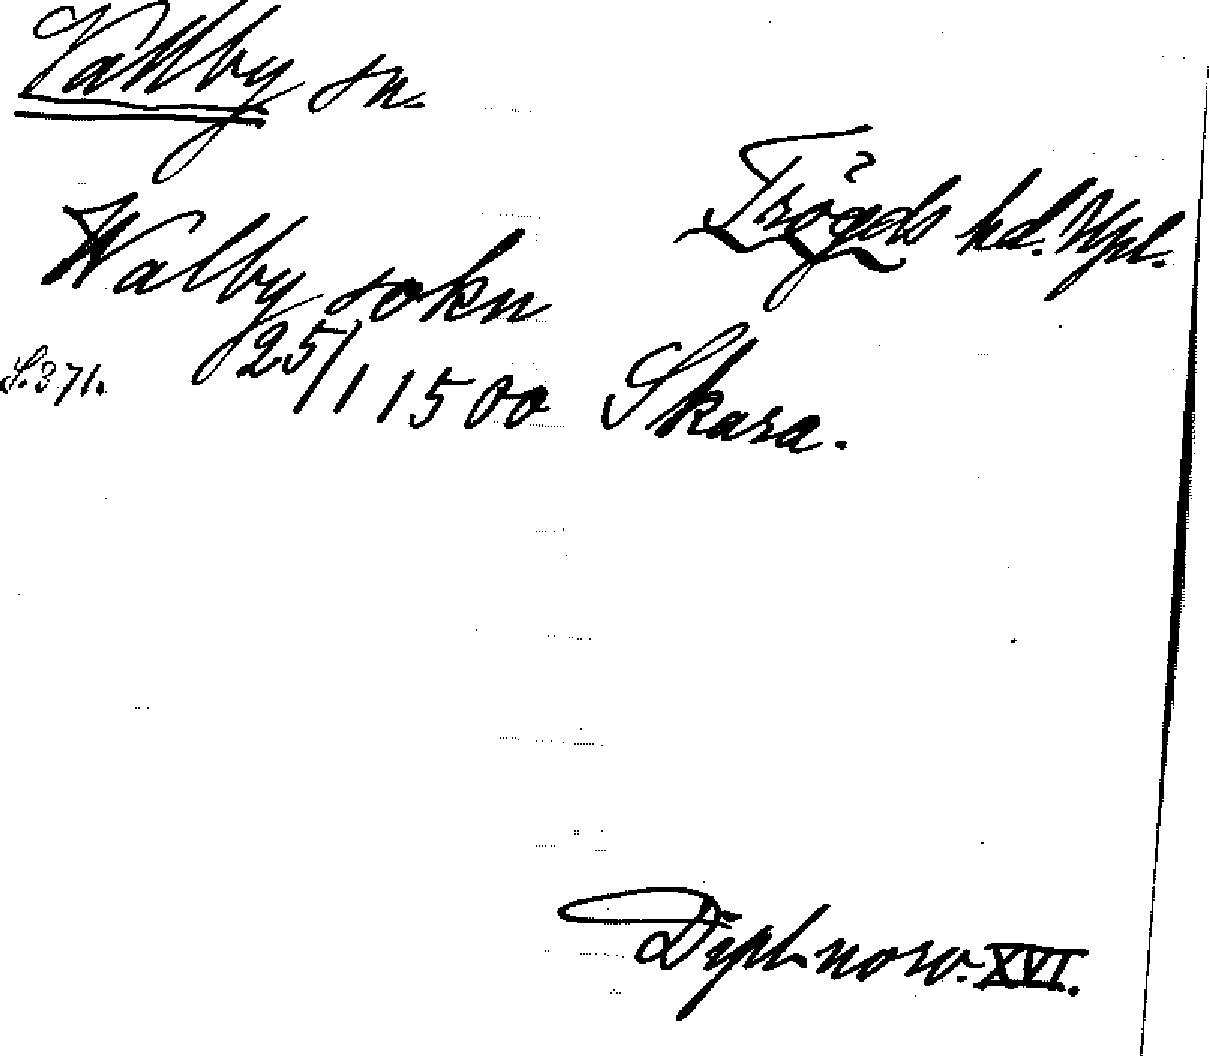 Vallby sn.
Trögds hd. Upl.
Walby sokn
S. 371. 25/1 1500 Skara.
Dipl. norv. XVI.